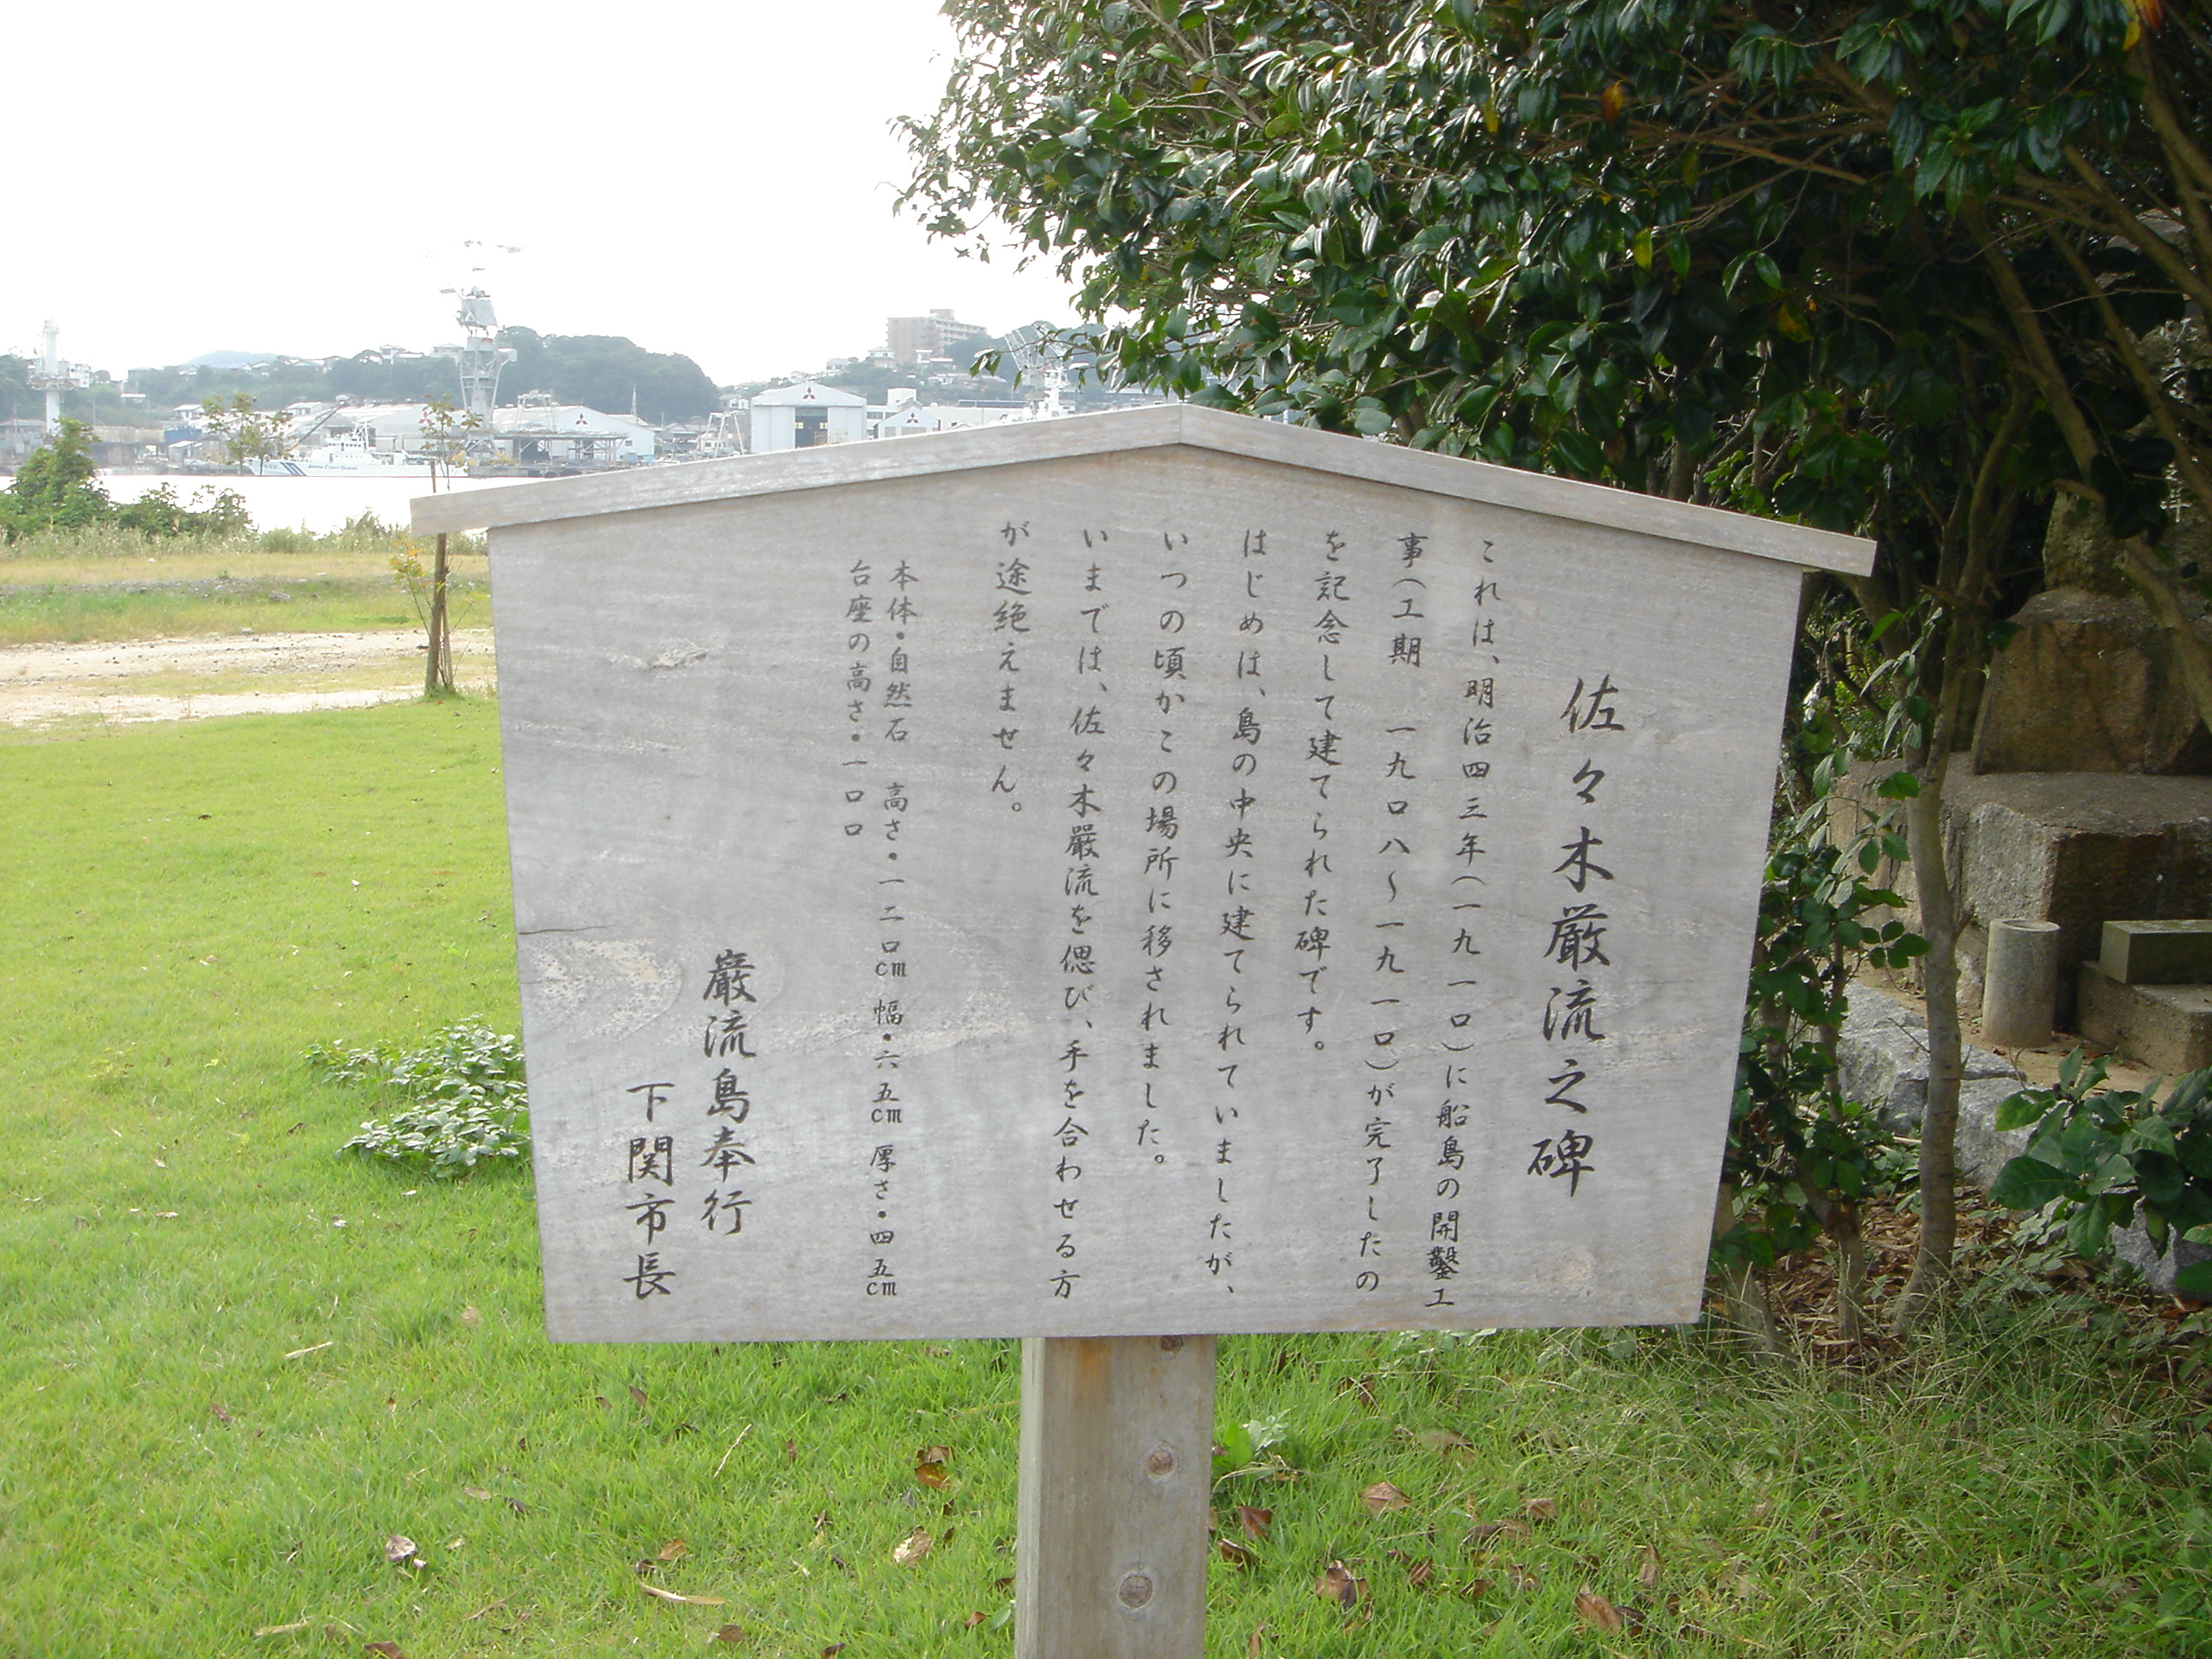 佐々木厳流之碑
これは、明治四三年(一九一〇)に船島の開鑿工
事(工期　一九〇八〜一九一〇)が完了したの
を記念して建てられた碑です。
はじめは、島の中央に建てられていましたが、
いつの頃かこの場所に移されました。
いまでは、佐々木巌流を偲び、手を合わせる方
が途絶えません。
本体・自然石　高さ・一二〇cm　幅・六五cm　厚さ・四五cm
台座の高さ・一〇〇
巌流島奉行
下関市長